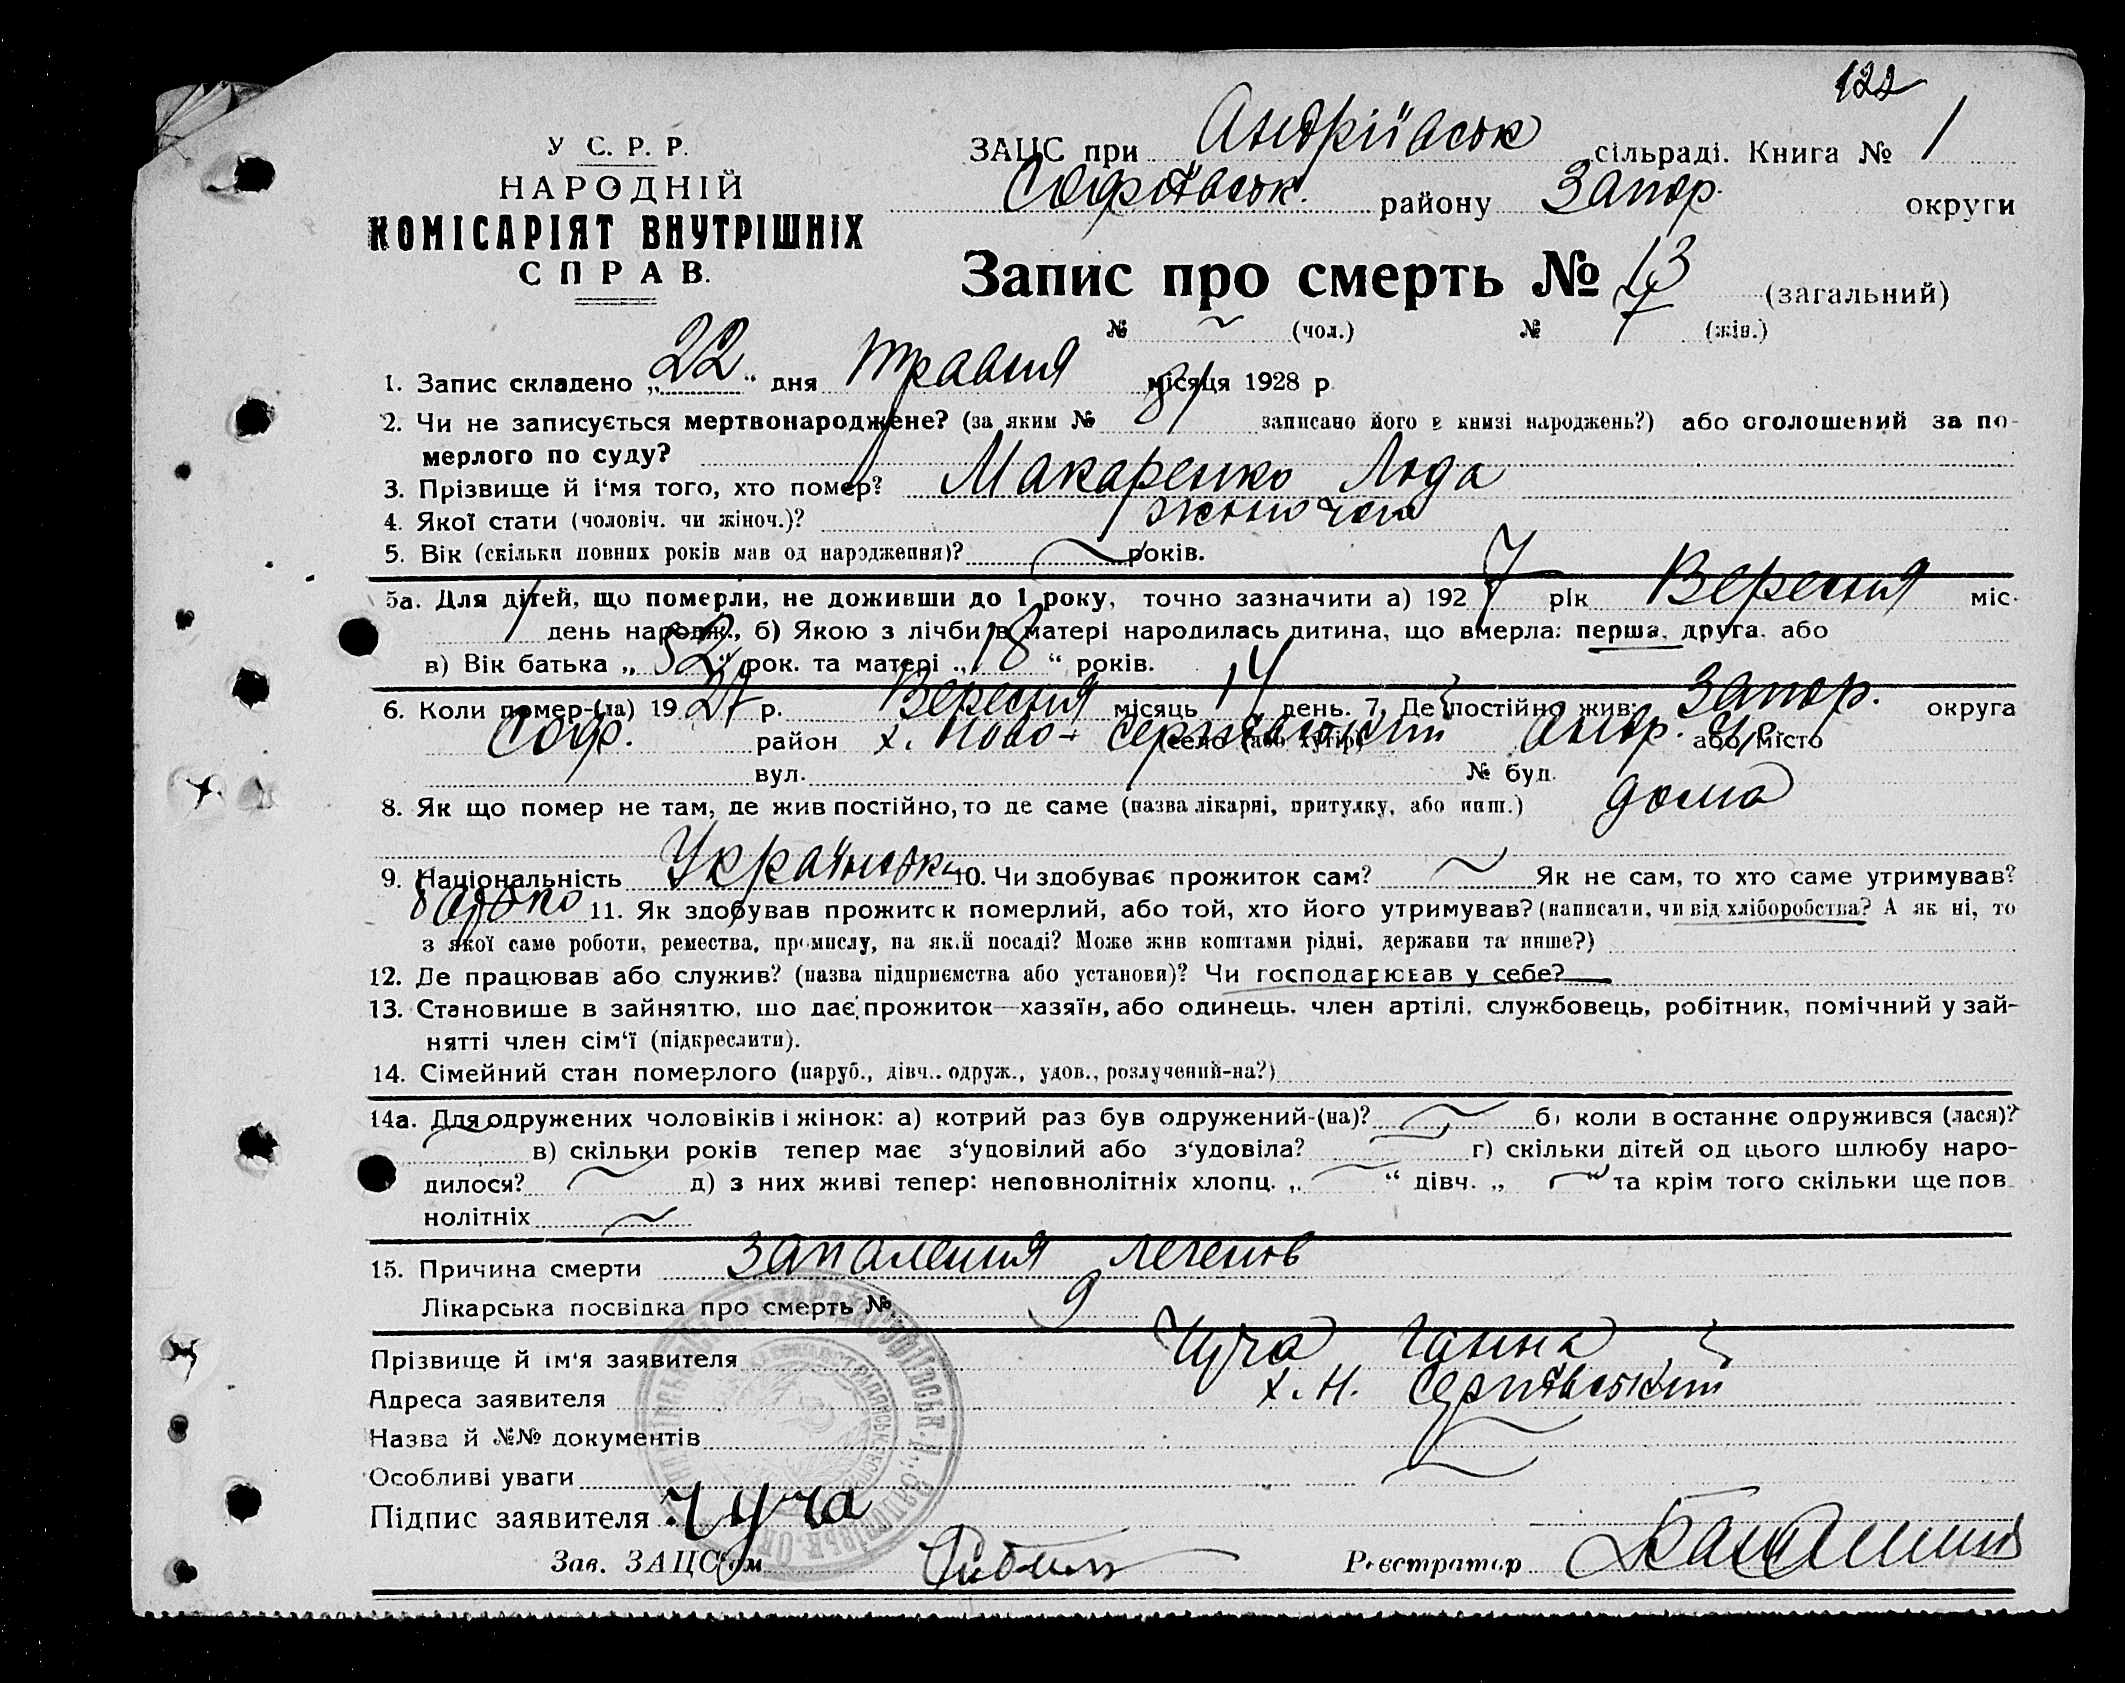 122
У С. Р. Р.
НАРОДНІЙ
КОМІСАРІЯТ ВНУТРІШНІХ
СПРАВ.
ЗАЦС при Андріївськ сільраді. Книга № 1
Софіївськ. району Запор. округи
Запис про смерть № 13 (загальний)
№ ~ (чол.) № 7 (жін.)
1. Запис складено „22“ дня травня місяця 1928 р.
2. Чи не записується мертвонароджене? (за яким № записано його в книзі народжень?) або оголошений за по-
мерлого по суду?
3. Прізвище й і'мя того, хто помер? Макаренко Люда
4. Якої стати (чоловіч. чи жіноч.)? жіноча
5. Вік (скільки повних років мав од народження)? ~ років.
5а. Для дітей, що померли, не доживши до 1 року, точно зазначити а) 1927 рік Вересня міс.
7 день народж., б) Якою з лічби в матері народилась дитина, що вмерла: перша, друга. або
в) Вік батька „ “ рок. та матері „18“ років.
6. Коли помер-(ла) 1927 р. Вересня місяць 14 день. 7. Де постійно жив: Запор. округа
Соф. район х. Ново-Сергіївський село (або хутір) або місто
вул. № буд.
8. Як що помер не там, де жив постійно, то де саме (назва лікарні, притулку, або инш.) дома
9. Національність Українськ 10. Чи здобуває прожиток сам? ~ Як не сам, то хто саме утримував?
батько 11. Як здобував прожиток померлий, або той, хто його утримував? (написати, чи від хліборобства? А як ні, то
з якої саме роботи, ремества, промислу, на якій посаді? Може жив коштами рідні, держави та инше?)
12. Де працював або служив? (назва підприємства або установи)? Чи господарював у себе?
13. Становище в зайняттю, що дає прожиток—хазяїн, або одинець, член артілі, службовець, робітник, помічний у зай-
нятті член сім'ї (підкреслити).
14. Сімейний стан померлого (паруб., дівч., одруж., удов., розлучений-на?)
14а. Для одружених чоловіків і жінок: а) котрий раз був одружений-(на)? ~ б) коли в останнє одружився (лася)?
~ в) скільки років тепер має з'уповілий або з'удовіла? ~ г) скільки дітей од цього шлюбу наро-
дилося? ~ д) з них живі тепер: неповнолітніх хлопц. „~“ дівч. „~“ та крім того скільки ще пов-
нолітніх ~
15. Причина смерти Запалення легенів
Лікарська посвідка про смерть № 9
Прізвище й ім'я заявителя Чуча Ганна
Адреса заявителя х. Н. Сергіївський
Назва й №№ документів ~
Особливі уваги ~
Підпис заявителя Чуча
Зав. ЗАЦС'ом Реєстратор